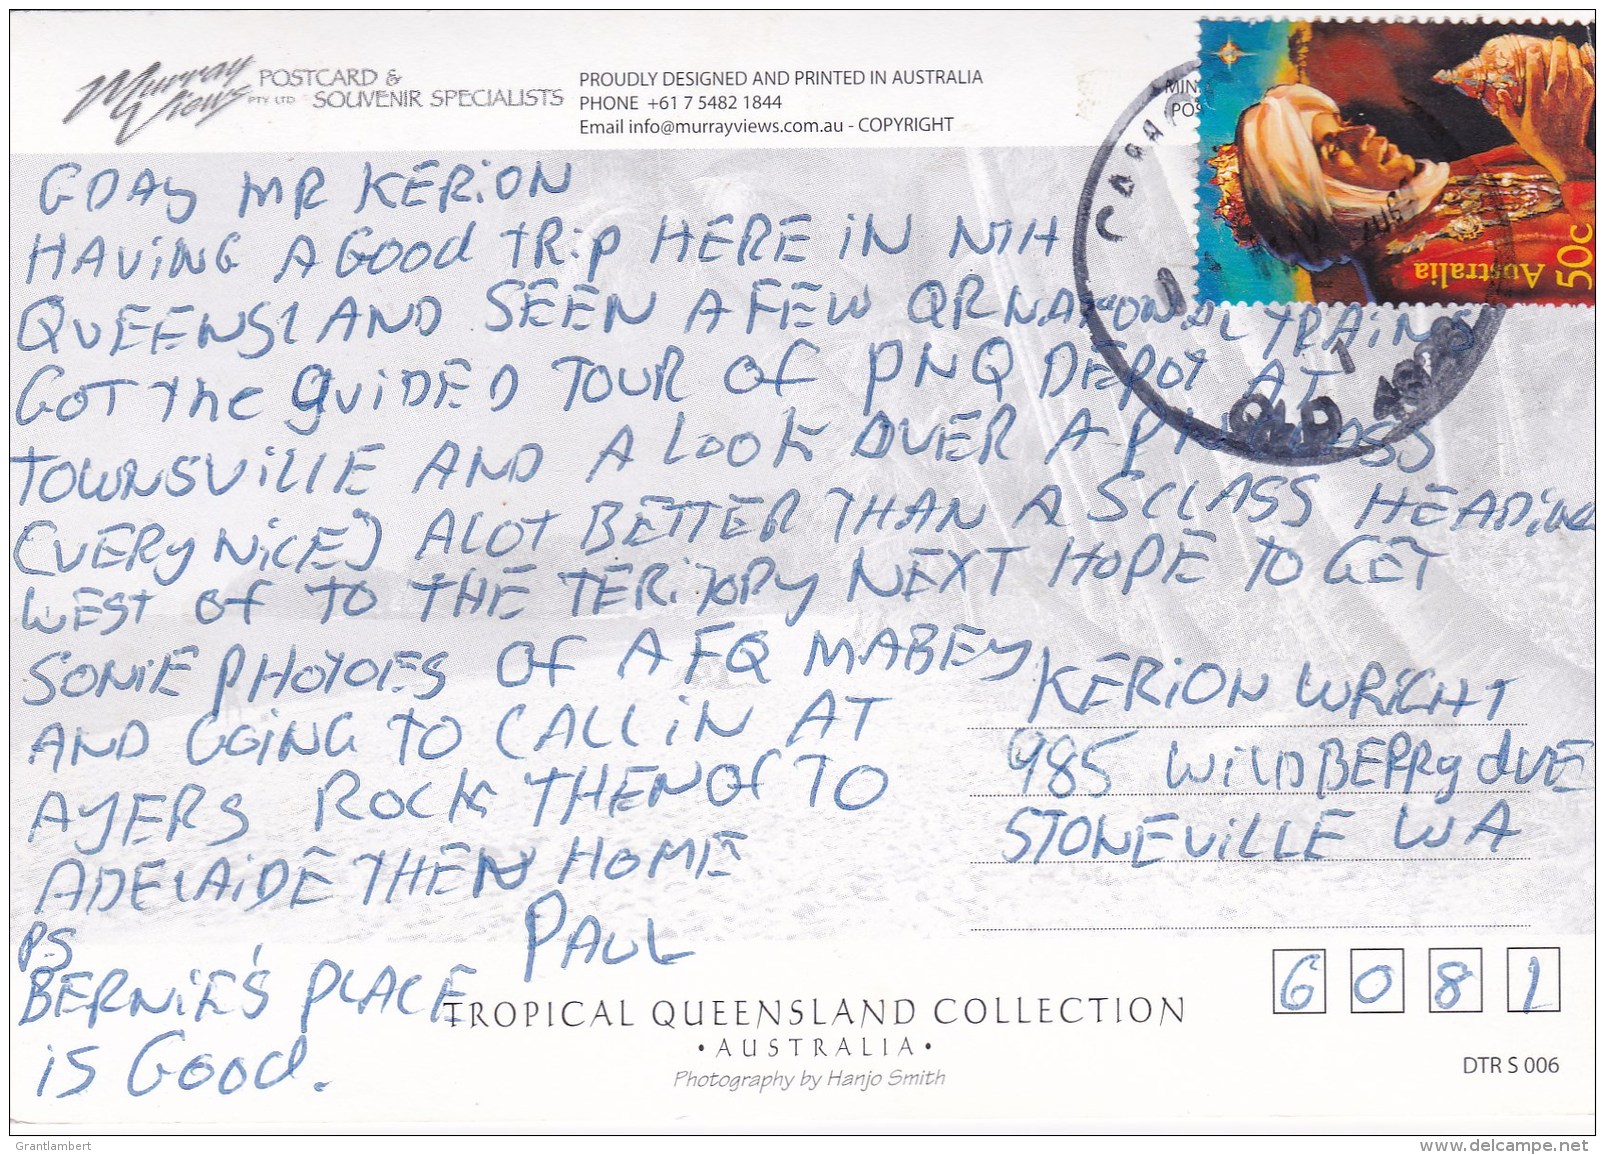 Murray Views PTY LTD POSTCARD & SOUVENIR SPECIALISTS
PROUDLY DESIGNED AND PRINTED IN AUSTRALIA
PHONE +61 7 5482 1844
Email info@murrayviews.com.au - COPYRIGHT
Australia 50c
QLD
GDAY MR KERiON
HAViNG A GOOd TRip HERE iN NTH
QUEENSLAND SEEN A FEW QRNATiONAL TRAiNS
GOT The gUiDED TOUR Of PNQ DEPOT AT
TOWNSViLLE AND A LOOK OVER A CLASS
(VERY NiCE) ALOT BETTER THAN A SCLASS HEADiNG
WEST Of TO THE TERiTORY NEXT HOPE TO GET
SOME PHOTOES Of A FQ MABEY
AND GOiNG TO CALL iN AT
AYERS ROCK THEN Of TO
ADELAiDE THEN HOME
PAUL
PS
BERNiE'S PLACE
iS GOOd.
KERiON WRiGHT
985 WiLDBERRy dVE
STONEViLLE WA
6081
TROPICAL QUEENSLAND COLLECTION
• AUSTRALIA •
Photography by Hanjo Smith
DTR S 006
Grantlambert
www.delcampe.net